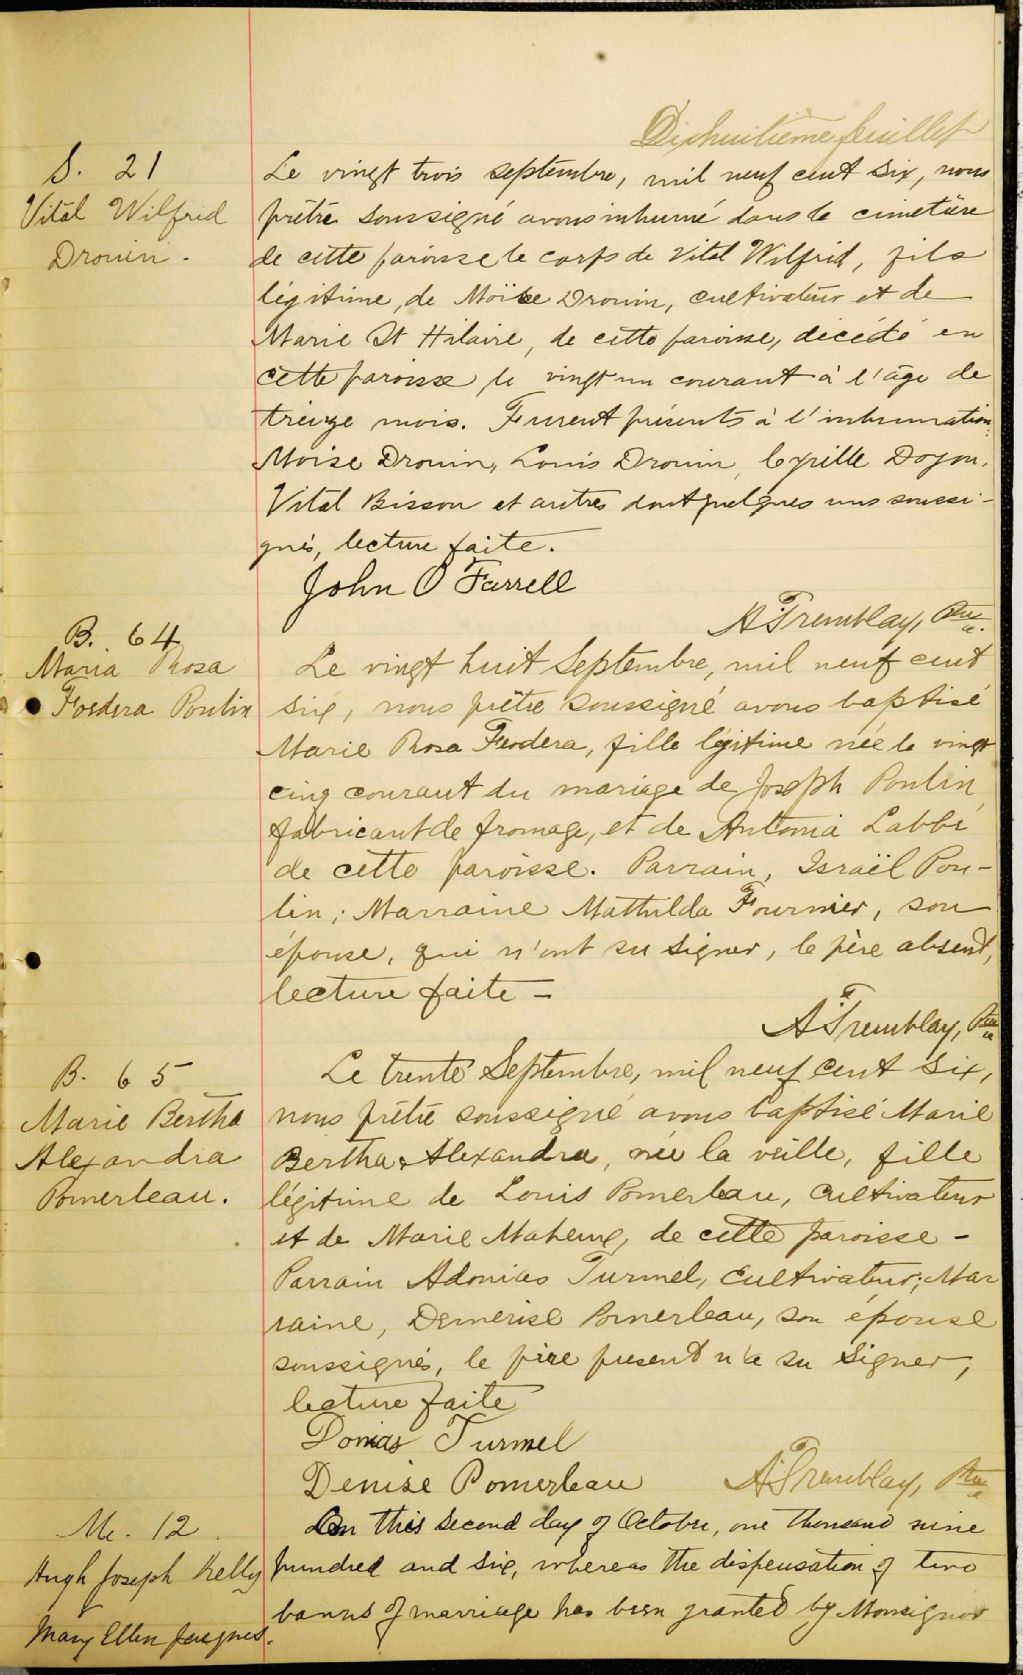 Dixhuitième feuillet
S. 21
Vital Wilfrid
Drouin.
Le vingt trois septembre, mil neuf cent six, nous
prêtre soussigné avons inhumé dans le cimetière
de cette paroisse le corps de Vital Wilfrid, fils
légitime, de Moïse Drouin, cultivateur et de
Marie St Hilaire, de cette paroisse, décédé en
cette paroisse le vingt un courant à l'âge de
treize mois. Furent présents à l'inhumation:
Moise Drouin, Louis Drouin, Cyrille Doyon,
Vital Bisson et autres dont quelques uns soussi-
gnés, lecture faite.
John O Farrell
A Tremblay, Ptre
B. 64
Maria Rosa
Foedera Poulin
Le vingt huit Septembre, mil neuf cent
six, nous prêtre soussigné avons baptisé
Marie Rosa Feodera, fille légitime née le vingt
cinq courant du mariage de Joseph Poulin,
fabricant de fromage, et de Antonia Labbé
de cette paroisse. Parrain, Israël Pou-
lin; Marraine Mathilda Fournier, son
épouse, qui n'ont su signer, le père absent,
lecture faite -
A Tremblay, Ptre
B. 65
Marie Bertha
Alexandra
Pomerleau.
Le trente Septembre, mil neuf cent six,
nous prêtre soussigné avons baptisé Marie
Bertha Alexandra, née la veille, fille
légitime de Louis Pomerleau, cultivateur
et de Marie Maheux, de cette paroisse -
Parrain Adonias Turmel, cultivateur; Mar
raine, Demerise Pomerleau, son épouse
soussignés, le père present n'a su signer,
lecture faite
Donias Turmel
Denise Pomerleau
A Tremblay, Ptre
M. 12
Hugh Joseph Kelly
Mary Ellen Jacques.
On this second day of October, one thousand nine
hundred and six, whereas the dispensation of two
banns of marriage has been granted by Monsignor